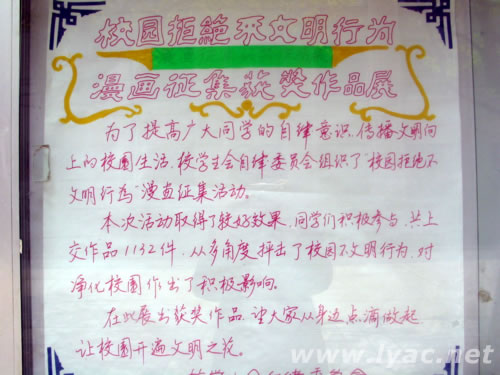 校园拒绝不文明行为
漫画征集获奖作品展
为了提高广大同学的自律意识,传播文明向
上的校园生活,校学生会自律委员会组织了"校园拒绝不
文明行为"漫画征集活动。
本次活动取得了较好效果,同学们积极参与,共上
交作品1132件,从多角度抨击了校园不文明行为,对
净化校园作出了积极影响。
在此展出获奖作品,望大家从身边点滴做起,
让校园开遍文明之花。
www.lyac.net